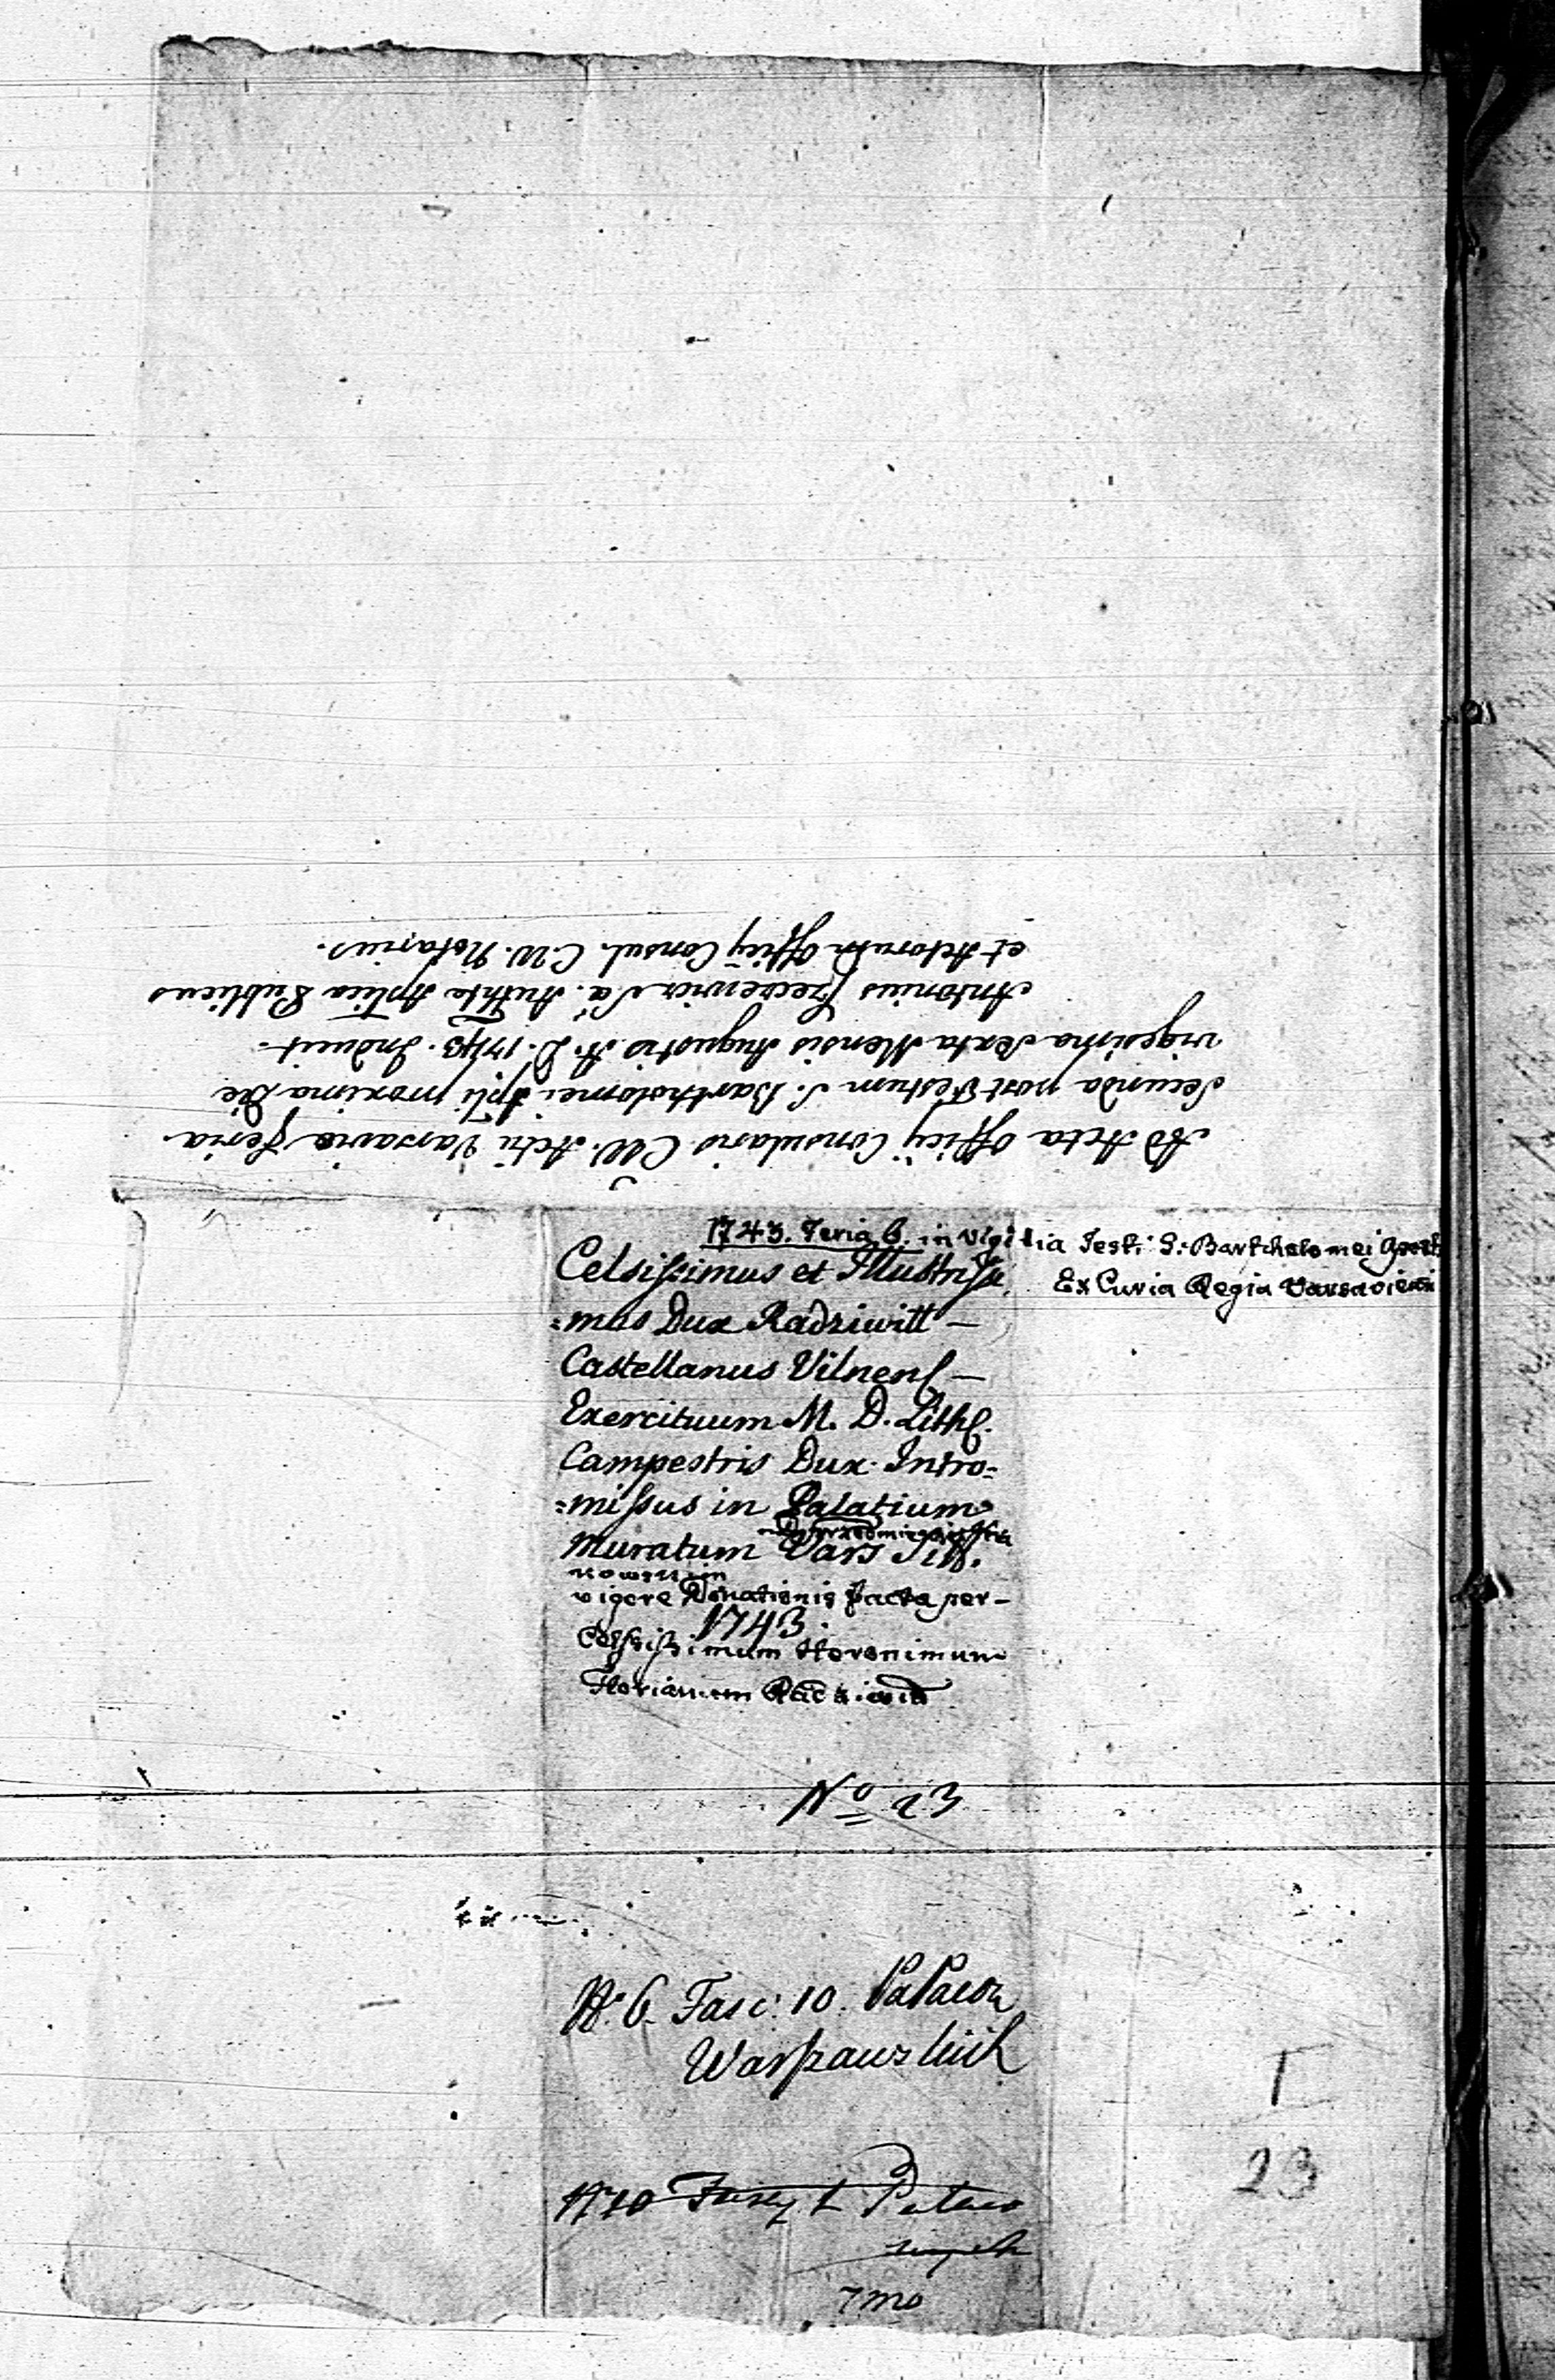 Ad Acta Officij Consularis C.W. Acti Varsavie Feria
Secunda post Festum S. Bartholomei Apli proxima Die
vigesima sexta Mensis Augusti A. D. 1743. Induxit
Antonius Sa. Autht Aplica Publicus
et Actorum Officij Consul. C.W. Notarius.
1743. Feria 6. in Vigilia Festi S. Bartholomei Apost.
Ex Curia Regia Varsaviensi
Celsissimus et Illustrissi
=mus Dux Radziwill —
Castellanus Vilnens —
Exercituum M. D. Lith.
Campestris Dux Intro=
=missus in Palatium
Muratum Vars
vigore Donationis facta per-
1743.
Celsissimum Heronimum
Florianum Radziwiłł
No 23
N. 6. Fasc: 10. Palacow
Warszawskich
N 10 Fascy 1
7mo
1
23